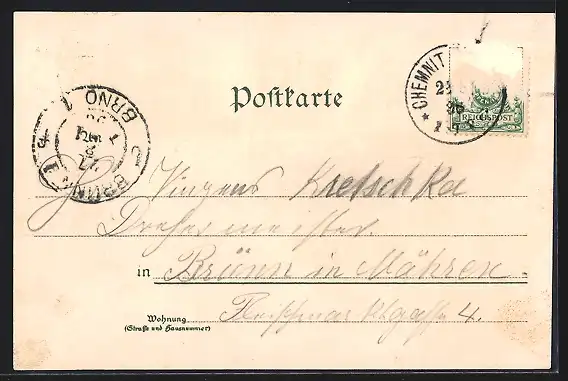 Postkarte
CHEMNITZ
REICHSPOST
BRÜNN
BRNO
Vinzens Kretschka
Drehermeister
in Brünn in Mähren.
Wohnung
(Straße und Hausnummer)
4.